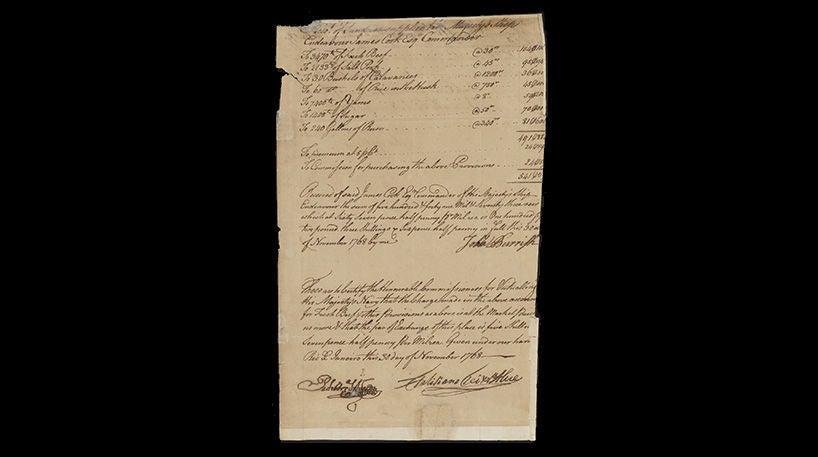 Majesty's Ship
Endeavour James Cook Esqr. Commander
To 3470 lb of Fresh Beef @ 30 rs
To 2135 lb of Salt Pork @ 45 rs
To 30 Bushels of Calavances @ 1200 rs
To 60 of Rice in the Husk @ 750 rs
To 7400 lb of Yams @ 8 rs
To 1400 lb of Sugar @ 50 rs
To 240 Gallons of Rum @ 340 rs
To premium at
To Commission for purchasing the above Provisions
Received of said James Cook Esqr. Commander of His Majesty's Ship
Endeavour the sum of five hundred & forty one Mil & Seventy three
which at Sixty Seven pence half penny Pr Milrea is One hundred
two pound three Shillings & Sixpence half penny in full this 30
of November 1768 by me John Burrish
These are to Certify the Honourable Commissioners for Victualling
His Majesty's Navy that the Charge made in the above account
for Fresh Beef & other Provisions as above is at the Market
no more & that the par of Exchange of this place is five Shill
Seven pence half penny Per Milrea. Given under our hand
Rio De Janeiro this 30 day of November 1768